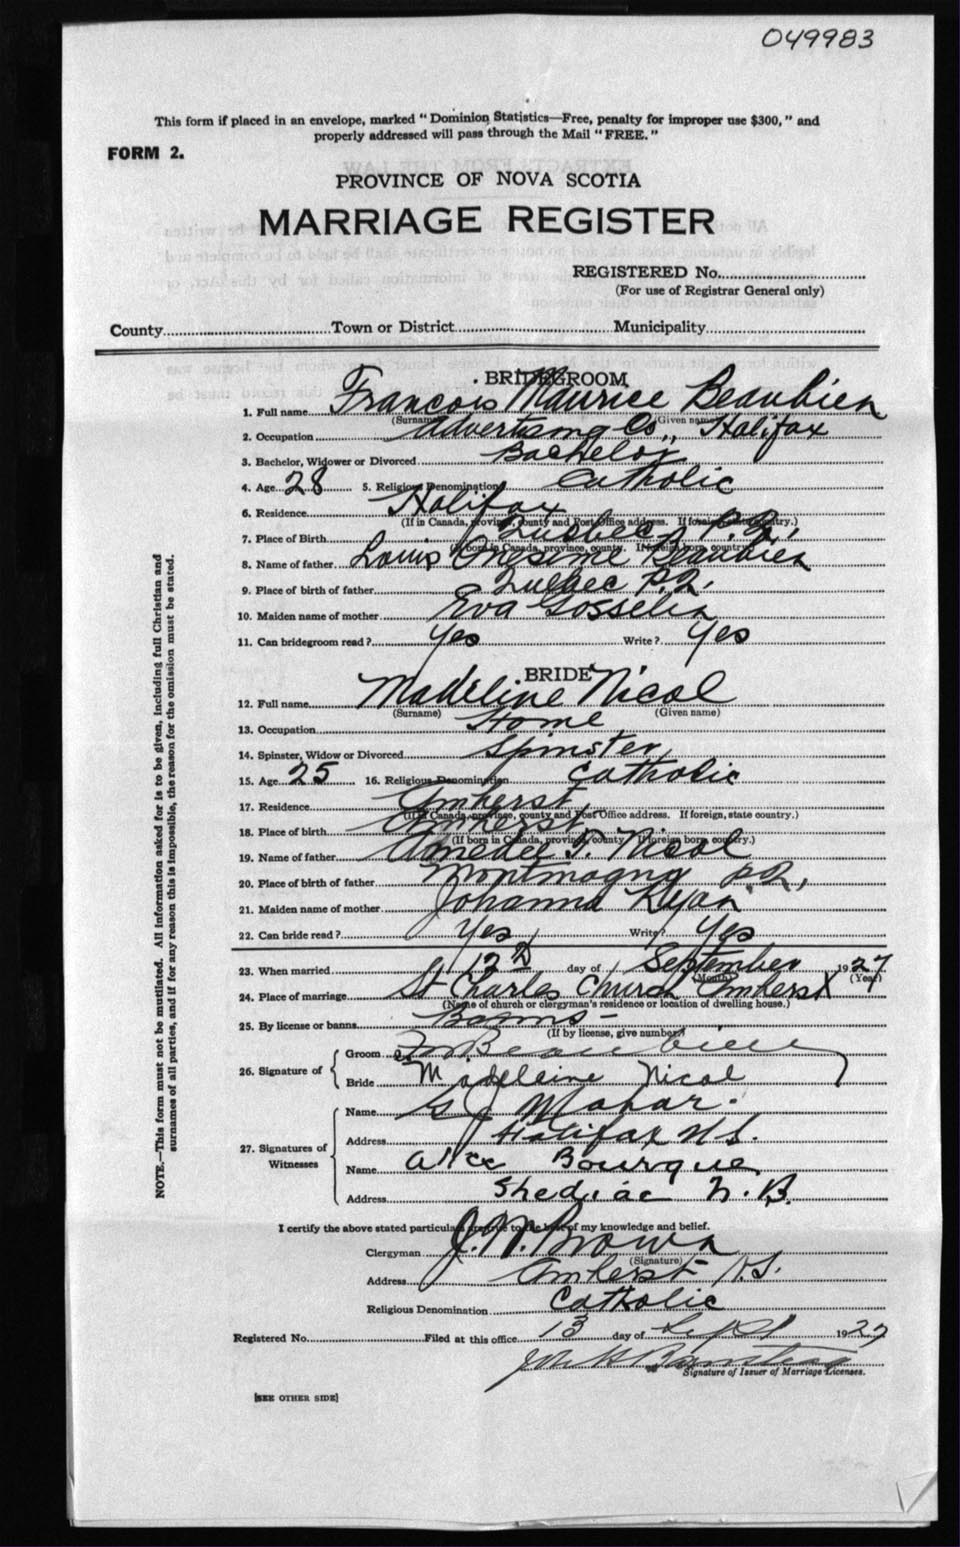 049983
This form if placed in an envelope, marked "Dominion Statistics—Free, penalty for improper use $300," and
properly addressed will pass through the Mail "FREE."
FORM 2.
PROVINCE OF NOVA SCOTIA
MARRIAGE REGISTER
REGISTERED No.
(For use of Registrar General only)
County Town or District Municipality
BRIDEGROOM
1. Full name Francois Maurice Beaubien
(Surname) (Given name)
2. Occupation Advertising Co., Halifax
3. Bachelor, Widower or Divorced Bachelor
4. Age 28 5. Religious Denomination Catholic
6. Residence Halifax
(If in Canada, province, county and Post Office address. If foreign, state country.)
7. Place of Birth Quebec P.Q.,
(If born in Canada, province, county. If foreign born, country.)
8. Name of father Louis Onesime Beaubien
9. Place of birth of father Quebec P.Q.
10. Maiden name of mother Eva Gosselin
11. Can bridegroom read? Yes Write? Yes
BRIDE
12. Full name Madeline Nicol
(Surname) (Given name)
13. Occupation Home
14. Spinster, Widow or Divorced Spinster,
15. Age 25 16. Religious Denomination Catholic
17. Residence Amherst
(If in Canada, province, county and Post Office address. If foreign, state country.)
18. Place of birth Amherst
(If born in Canada, province, county. If foreign born, country.)
19. Name of father Amedee T. Nicol
20. Place of birth of father Montmagny P.Q.,
21. Maiden name of mother Johanna Ryan
22. Can bride read? Yes Write? Yes
23. When married 12th day of September 1927
(Month) (Year)
24. Place of marriage St Charles Church Amherst
(Name of church or clergyman's residence or location of dwelling house.)
25. By license or banns Banns-
(If by license, give number)
26. Signature of
Groom Beaubien
Bride Madeleine Nicol
27. Signatures of Witnesses
Name G J Mahar.
Address Halifax N S.
Name Alice Bourque
Address Shediac N. B.
I certify the above stated particulars are true to the best of my knowledge and belief.
Clergyman J. N. Brown
(Signature)
Address Amherst N.S.
Religious Denomination Catholic
Registered No. Filed at this office 13 day of Sept 1927
Signature of Issuer of Marriage Licenses.
[SEE OTHER SIDE]
NOTE.—This form must not be mutilated. All information asked for is to be given, including full Christian and
surnames of all parties, and if for any reason this is impossible, the reason for the omission must be stated.